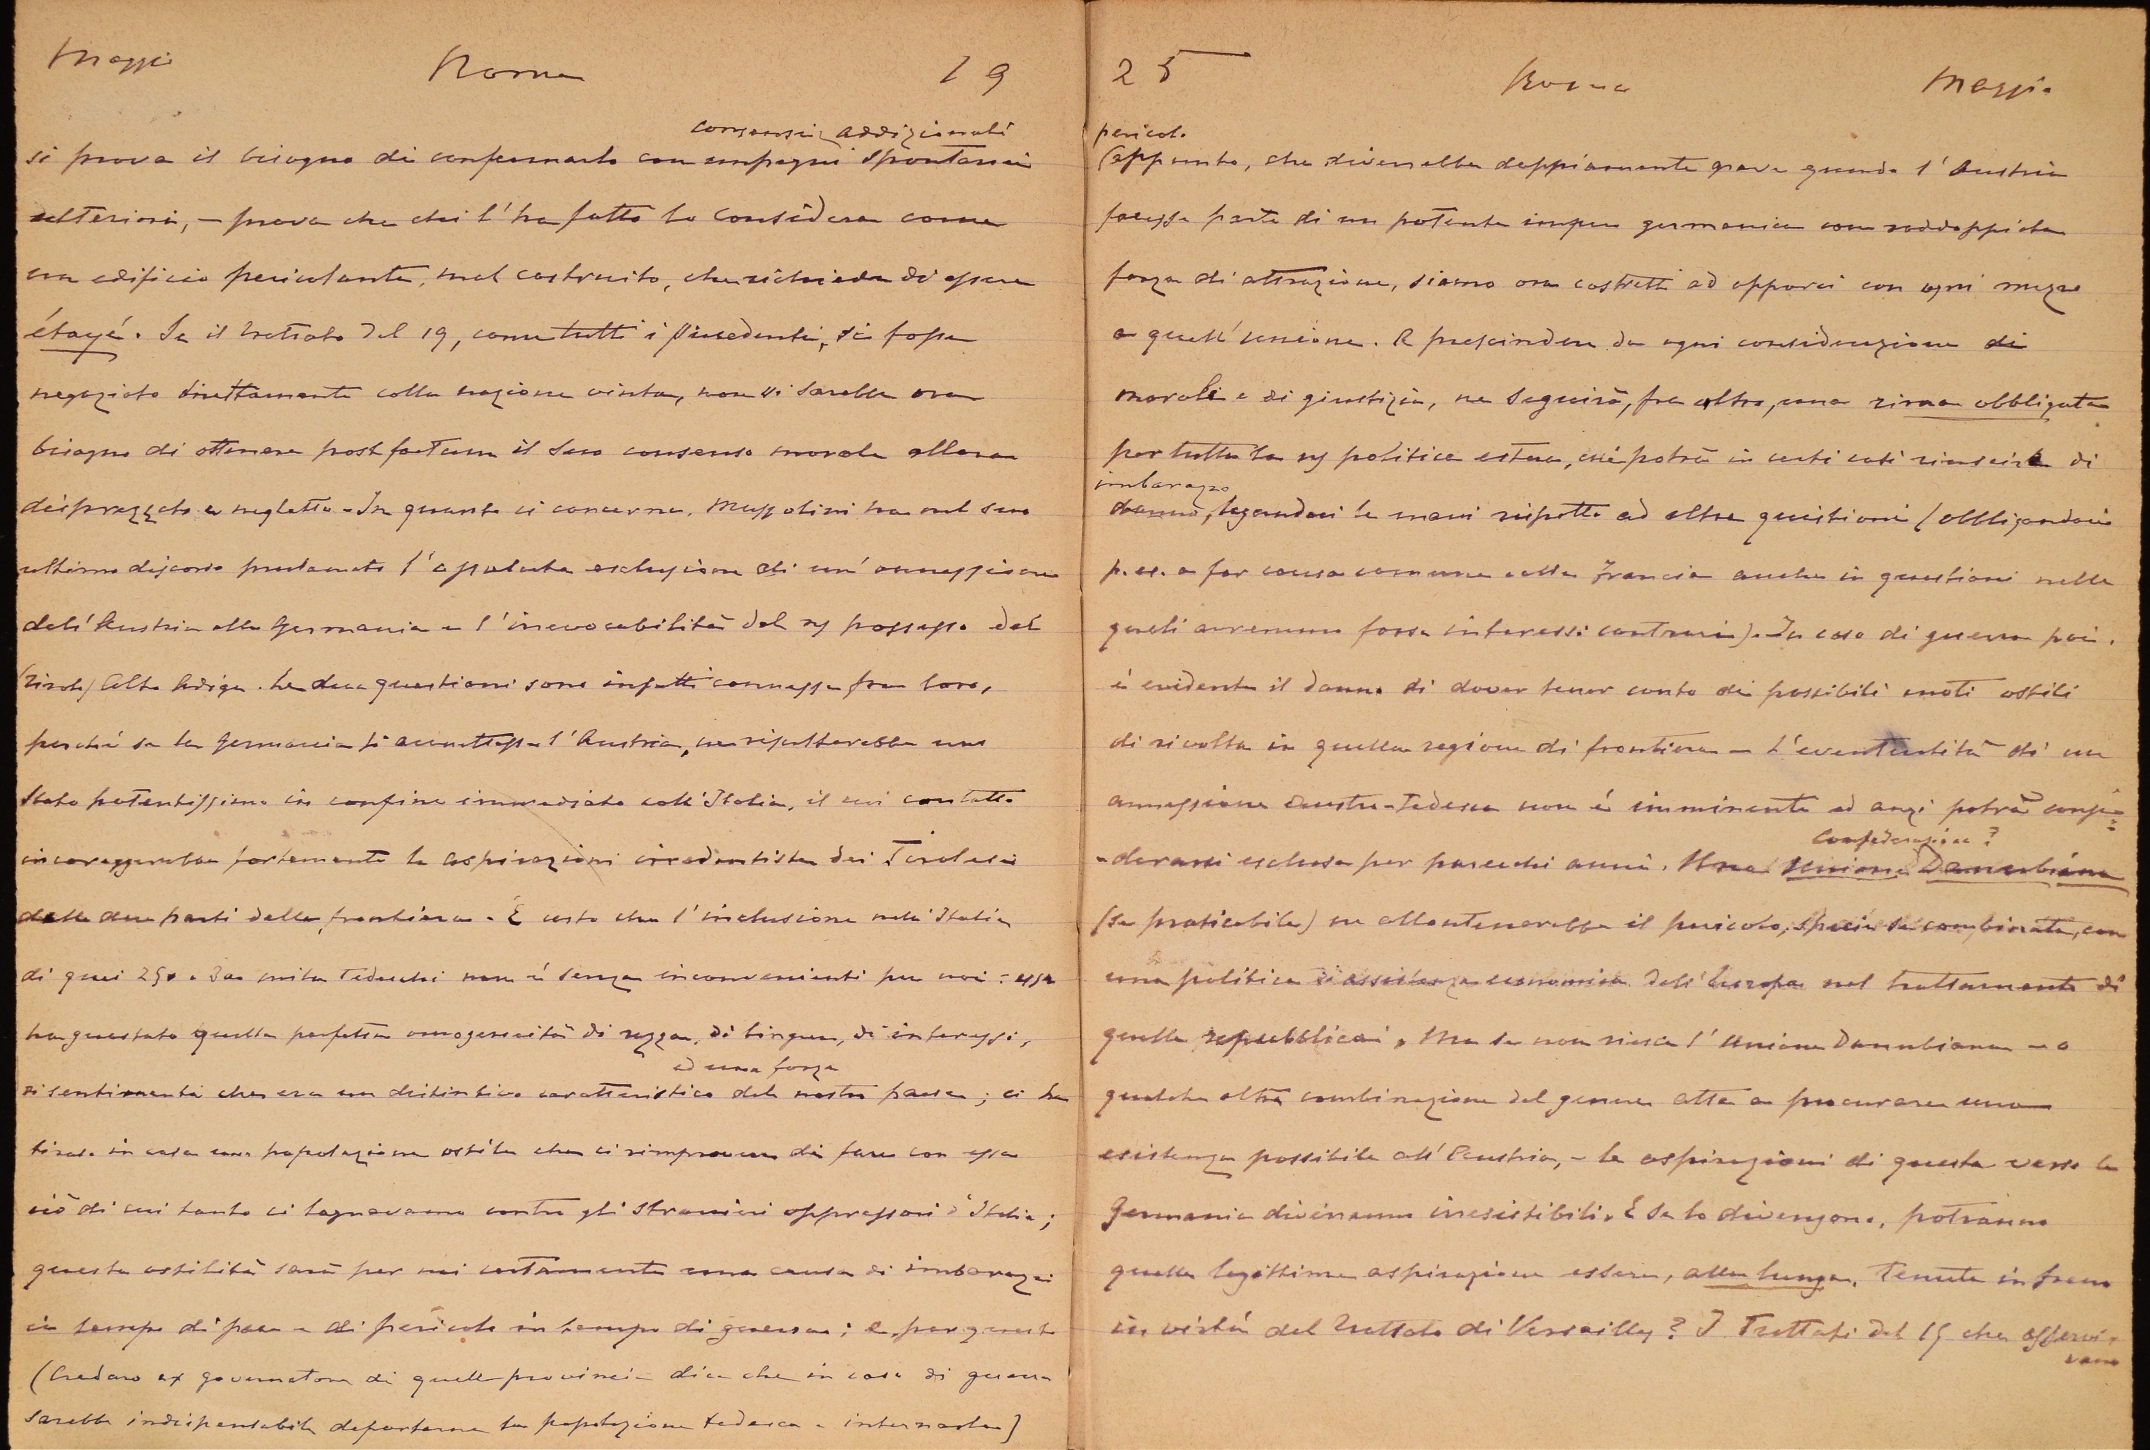 Maggio Roma 19
consensi addizionali
si prova il bisogno di confermarlo con impegni spontanei
ulteriori, – prova che chi l'ha fatto lo considera come
un edificio pericolante, mal costruito, che richiede di essere
étayé. Se il trattato del 19, come tutti i precedenti, si fosse
negoziato direttamente colla nazione vinta, non vi sarebbe ora
bisogno di ottenere post factum il suo consenso morale allora
disprezzato e negletto – In quanto ci concerne, Mussolini ha nel suo
ultimo discorso proclamato l'assoluta esclusione di un'annessione
dell'Austria alla Germania e l'irrevocabilità del ns possesso del
(Tirolo) Alto Adige. Le due questioni sono infatti connesse fra loro,
perché se la Germania si annettesse l'Austria, ne risulterebbe uno
Stato potentissimo in confine immediato coll'Italia, il cui contatto
incoraggerebbe fortemente le aspirazioni irredentiste dei Tirolesi
dalle due parti della frontiera. È certo che l'inclusione nell'Italia
di quei 250 o 300 mila Tedeschi non è senza inconvenienti per noi: essa
ha guastato quella perfetta omogeneità di razza, di lingua, di interessi,
ed una forza
di sentimenti che era un distintivo caratteristico del nostro paese; ci ha
tirato in casa una popolazione ostile che ci rimprovera di fare con essa
ciò di cui tanto ci lagnavamo contro gli stranieri oppressori d'Italia;
questa ostilità sarà per noi certamente una causa di imbarazzi
in tempo di pace e di pericolo in tempo di guerra; e per questo
(Credaro ex governatore di quelle provincie dice che in caso di guerra
sarebbe indispensabile deportarne la popolazione tedesca e internarla)
25 Roma Maggio
pericolo
(appunto, che diverrebbe doppiamente grave quando l'Austria
facesse parte di un potente impero germanico con raddoppiata
forza di attrazione, siamo ora costretti ad opporci con ogni mezzo
a quell'unione. A prescindere da ogni considerazione di
morale e di giustizia, ne seguirà, fra altro, una rima obbligata
per tutta la ns politica estera, che potrà in certi casi riuscire di
imbarazzo
danno, legandoci le mani rispetto ad altre quistioni (obbligandoci
p. es. a far causa comune colla Francia anche in questioni nelle
quali avremmo forse interessi contrari). In caso di guerra poi,
è evidente il danno di dover tener conto di possibili moti ostili
di rivolta in quella regione di frontiera – L'eventualità di un
annessione Austro-Tedesca non è imminente ed anzi potrà consi=
Confederazione?
-derarsi esclusa per parecchi anni. Una Unione Danubiana
(se praticabile) ne allontanerebbe il pericolo, specie se combinata con
una politica di assistenza economica dell'Europa nel trattamento di
quelle repubbliche. Ma se non riesce l'Unione Danubiana – o
qualche altra combinazione del genere atta a procurare una
esistenza possibile all'Austria, – le aspirazioni di questa verso la
Germania diverranno irresistibili. E se lo divengono, potranno
quelle legittime aspirazioni essere, alla lunga, tenute in freno
in virtù del trattato di Versailles? I Trattati del 15 che asservi-
vano